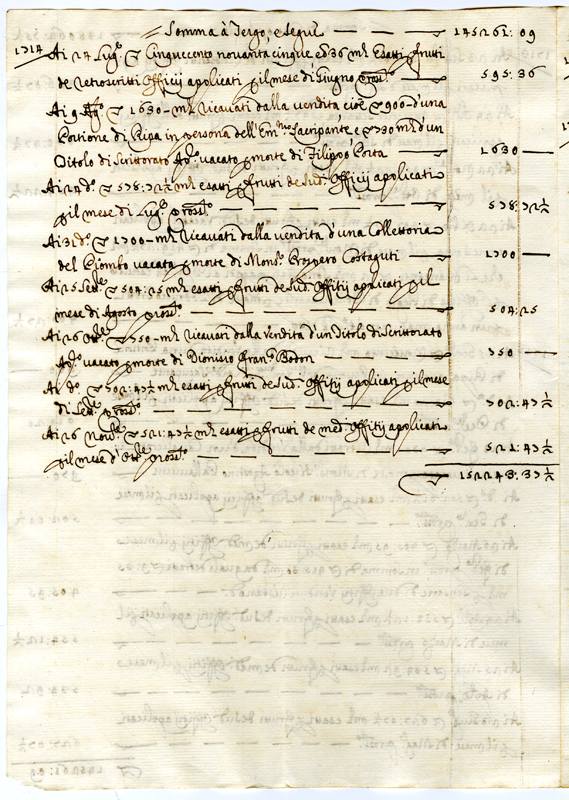 Somma à Tergo, e segue — — 145261: 09
1714 Ai 27 Lug.o ▽ Cinquecento novanta cinque e 36 m.ta esatti p frutti
de retroscritti Offitij applicati p il mese di Giugno pross.o — 595: 36
Ai 9 Ag.o ▽ 1630 - m.ta ricavati dalla vendita cioè ▽ 900 - d'una
Portione di Ripa in persona dell'Em.mo Sacripante, e ▽ 730 m.ta d'un
Titolo di Scrittorato Ap.o vacato p morte di Filippo Porta — 1630 —
Ai 27 d.o ▽ 578: 72½ m.ta esatti p frutti de Sud.i Offitij applicati
p il mese di Lug.o pross.o — — — — 578: 72½
Ai 31 d.o ▽ 1700 - m.ta ricavati dalla vendita d'una Collettoria
del Piombo vacata p morte di Mons.r Prospero Costaguti — 1700 —
Ai 25 Sett.re ▽ 504: 25 m.ta esatti p frutti de Sud.i Offitij applicati p il
mese di Agosto pross.o — — — — 504: 25
Ai 26 Ott.re ▽ 750 - m.ta ricavati dalla vendita d'un Titolo di Scrittorato
Ap.o vacato p morte di Dionisio Fran.co Bodon — — 750 —
A d.o ▽ 702: 47½ m.ta esatti p frutti de Sud.i Offitij applicati p il mese
di Sett.re pross.o — — — — 702: 47½
Ai 26 Nov.re ▽ 521: 47½ m.ta esatti p frutti de med.i Offitij applicati
p il mese d'Ott.re pross.o — — — — 521: 47½
▽ 152243: 37½